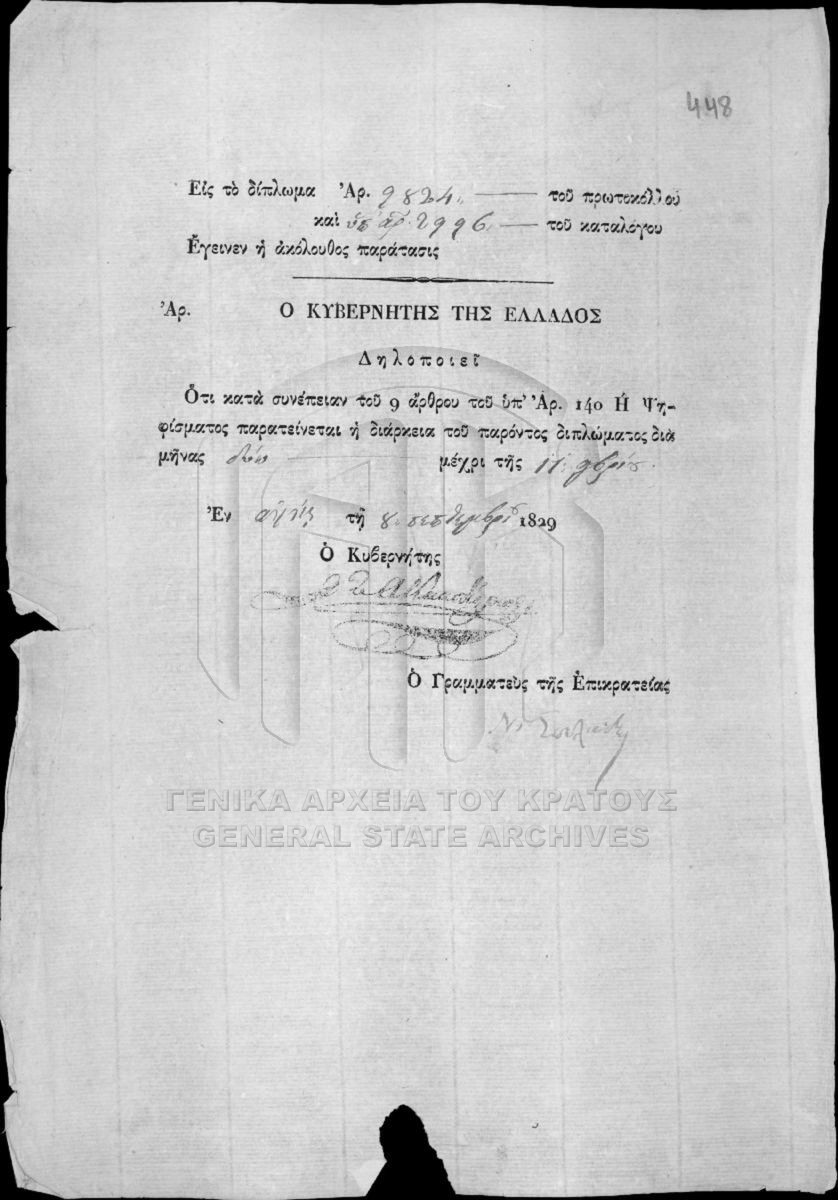 448
Εἰς τὸ δίπλωμα Ἀρ. 9824. τοῦ πρωτοκόλλου
καὶ ὑπ' ἀρ. 2996. τοῦ καταλόγου
Ἔγεινεν ἡ ἀκόλουθος παράτασις
Ἀρ. Ο ΚΥΒΕΡΝΗΤΗΣ ΤΗΣ ΕΛΛΑΔΟΣ
Δηλοποιεῖ
Ὅτι κατὰ συνέπειαν τοῦ 9 ἄρθρου τοῦ ὑπ' Ἀρ. 140 Ἠ Ψη-
φίσματος παρατείνεται ἡ διάρκεια τοῦ παρόντος διπλώματος διὰ
μῆνας δύω μέχρι τῆς 11. 9βρίου.
Ἐν τῇ 8. σεπτεμβρίου 1829
Ὁ Κυβερνήτης
Ὁ Γραμματεὺς τῆς Ἐπικρατείας
ΓΕΝΙΚΑ ΑΡΧΕΙΑ ΤΟΥ ΚΡΑΤΟΥΣ
GENERAL STATE ARCHIVES